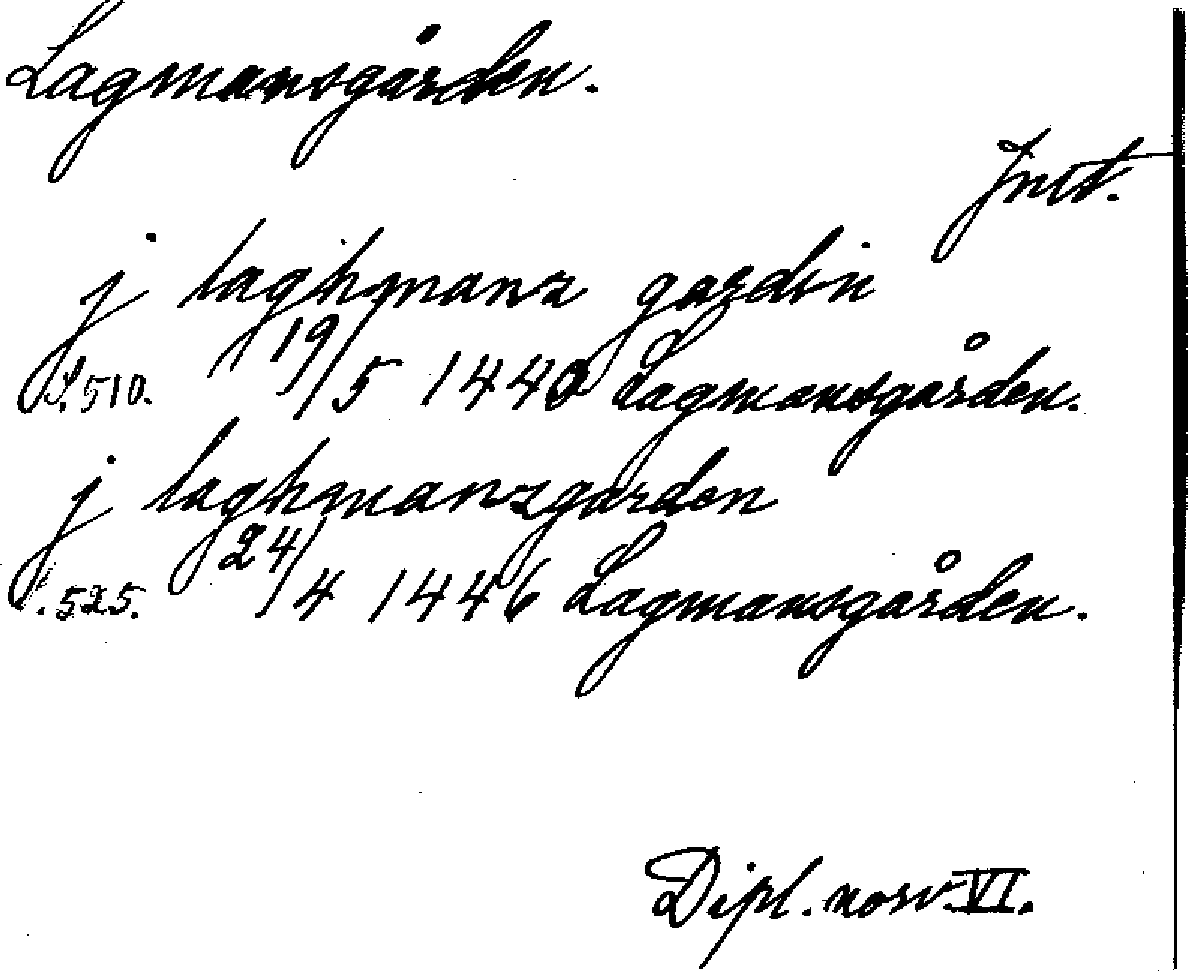 Lagmansgården.
j laghmanz gardin
S. 510. 19/5 1440 Lagmansgården.
j laghmanzgarden
S. 525. 24/4 1446 Lagmansgården.
Dipl. norv. VI.